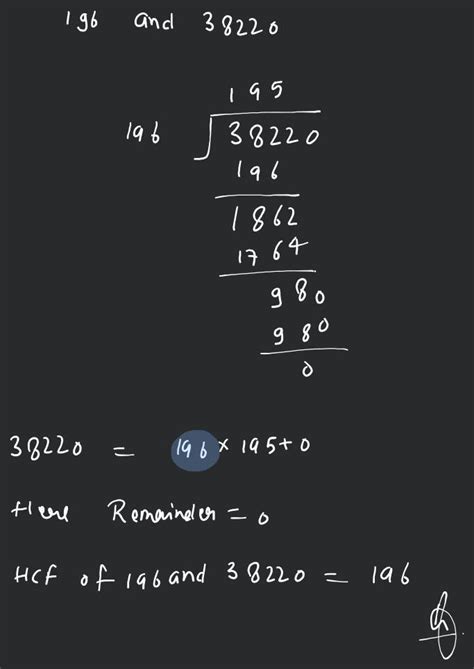 196 and 38220
195
196 38220
196
1862
1764
980
980
0
38220 = 196 × 195 + 0
Here Remainder = 0
HCF of 196 and 38220 = 196